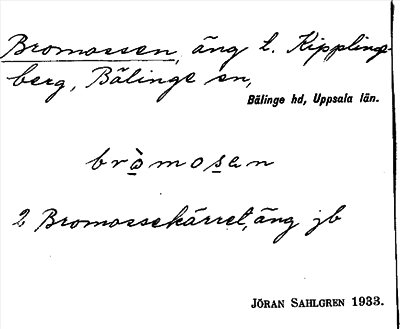 Bromossen, äng t. Kipplings-
berg, Bälinge sn,
Bälinge hd, Uppsala län.
bròmosen
2 Bromossekärret, äng jb
JÖRAN SAHLGREN 1933.